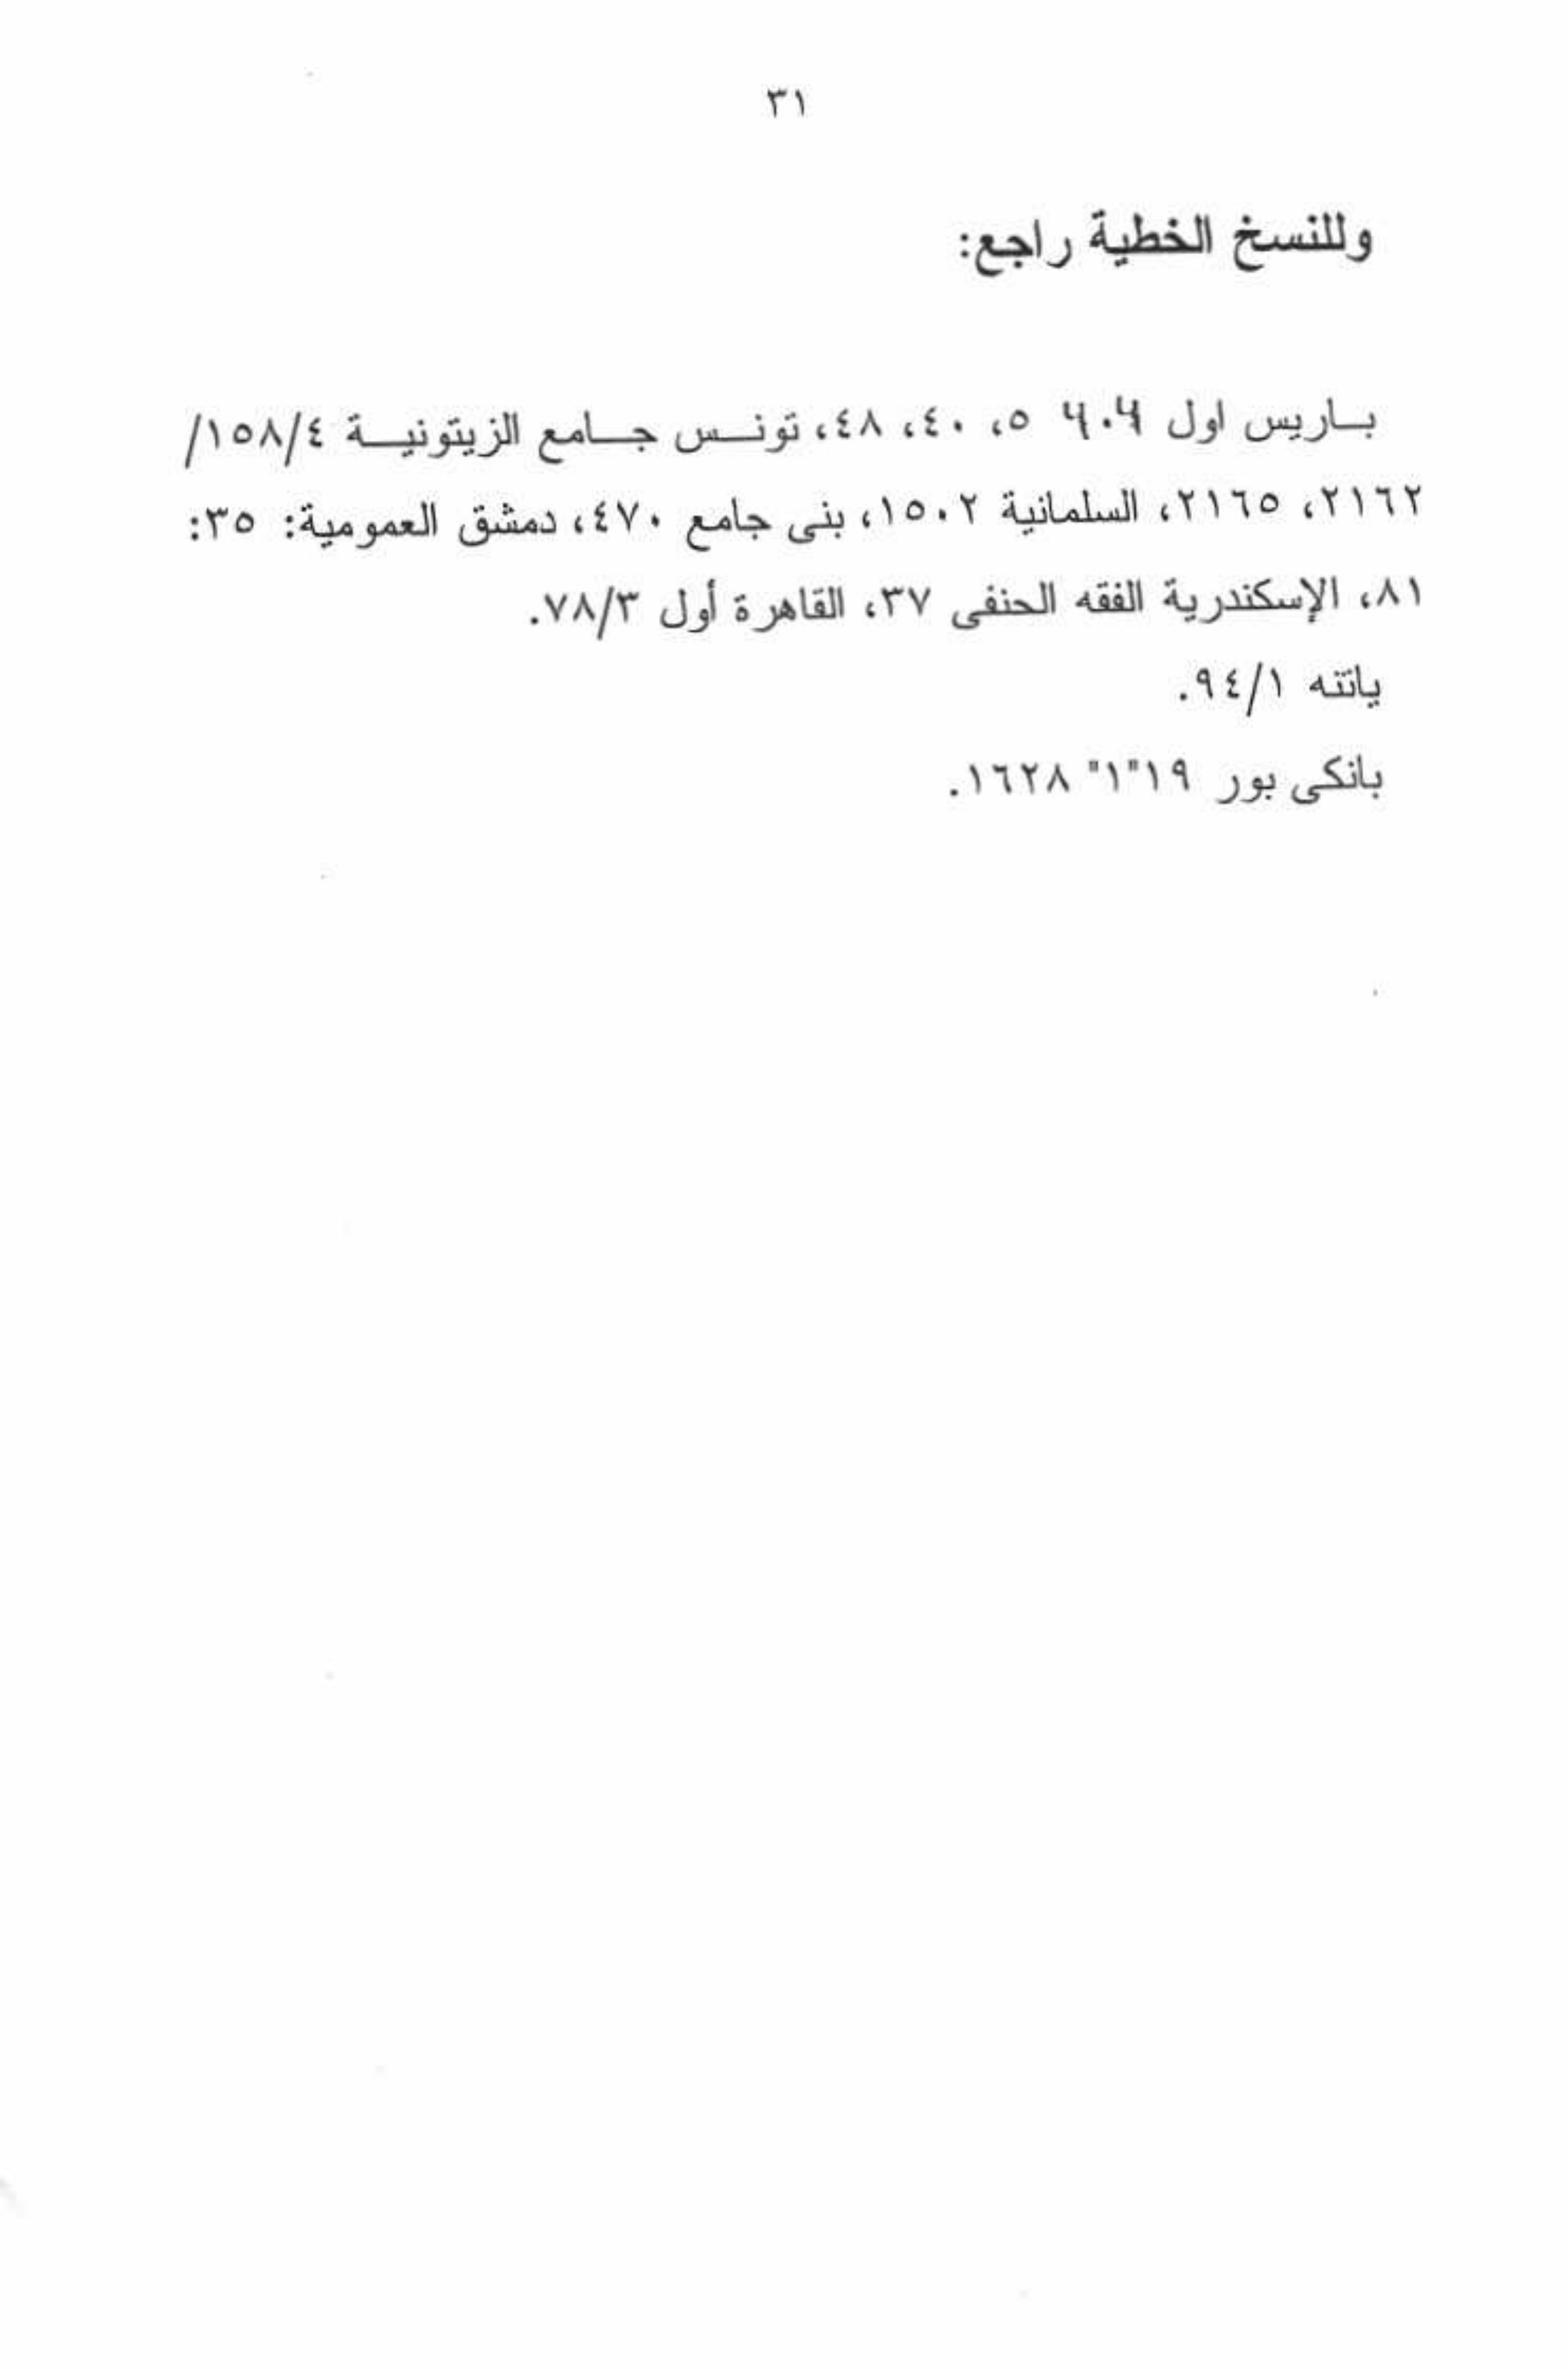 ٣١
وللنسخ الخطية راجع:
باريس اول ٩٠٩ ٥، ٤٠، ٤٨، تونس جامع الزيتونية ١٥٨/٤/
٢١٦٢، ٢١٦٥، السلمانية ١٥٠٢، بنى جامع ٤٧٠، دمشق العمومية: ٣٥:
٨١، الإسكندرية الفقه الحنفى ٣٧، القاهرة أول ٧٨/٣.
ياتنه ٩٤/١.
بانكى بور ١٩"١" ١٦٢٨.